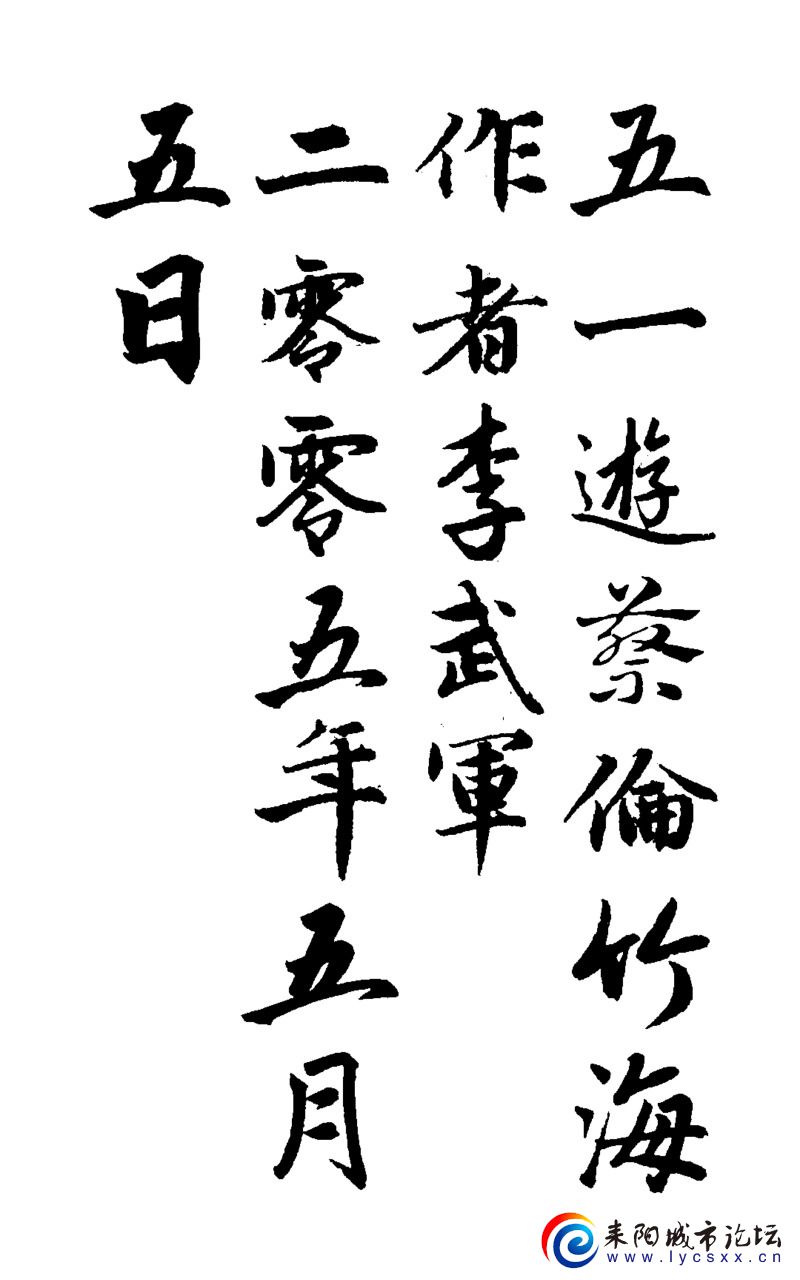 五一遊蔡倫竹海
作者李武軍
二零零五年五月
五日
耒阳城市论坛
www.lycsxx.cn